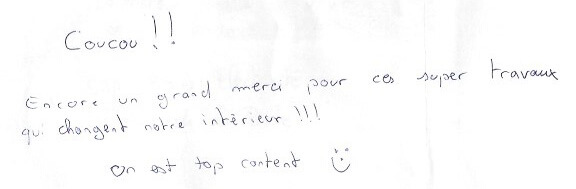 Coucou !!
Encore un grand merci pour ces super travaux
qui changent notre intérieur !!!
On est top content